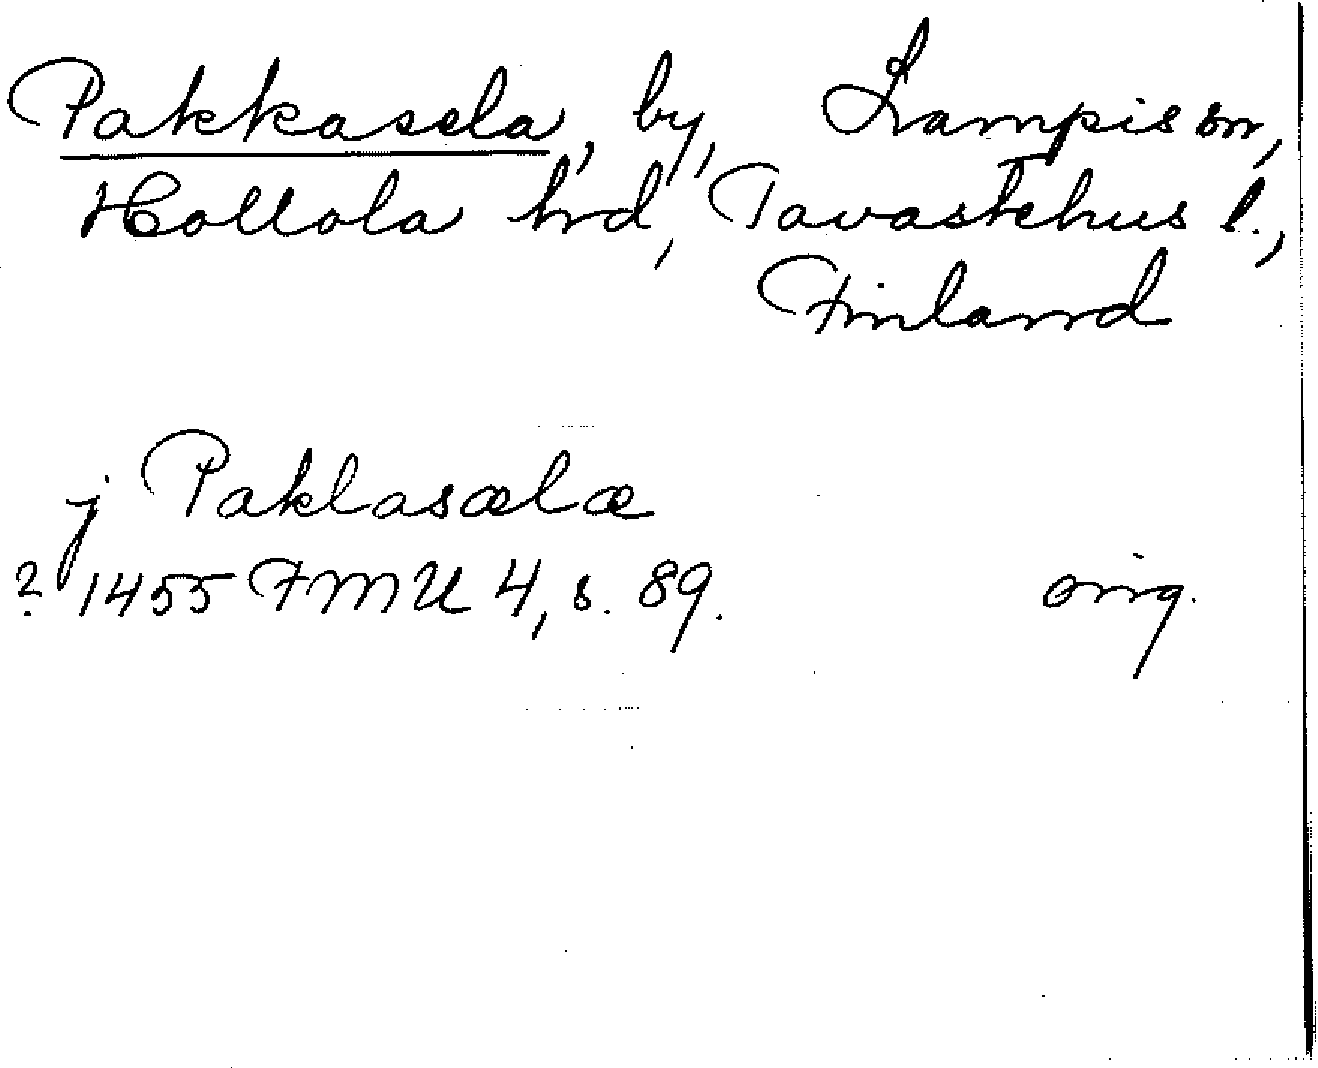 Pakkasela, by, Lampis sn,
Hollola hrd, Tavastehus l.,
Finland
j Paklasælæ
? 1455 FMU 4, s. 89. orig.